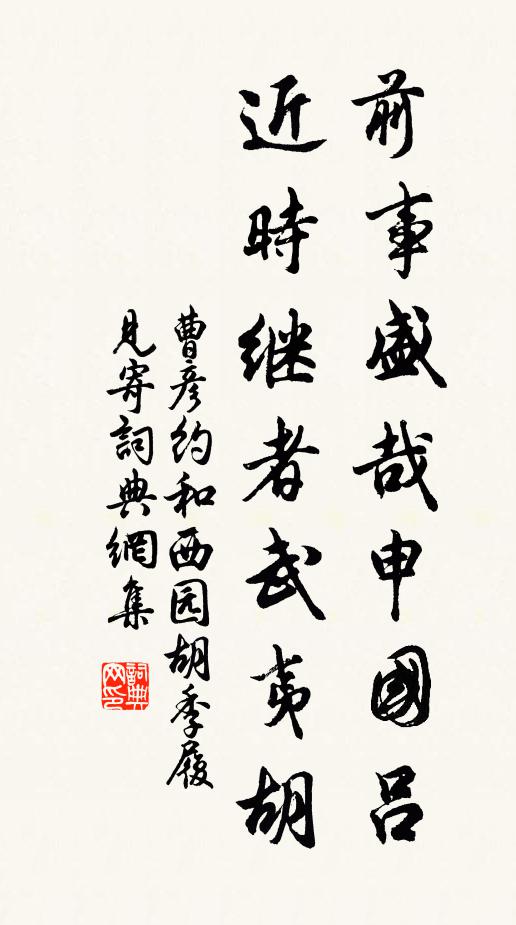 前事盛哉申國呂
近時继者武夷胡
曹彦约和西园胡季履
見寄詞典網集
詞典网印